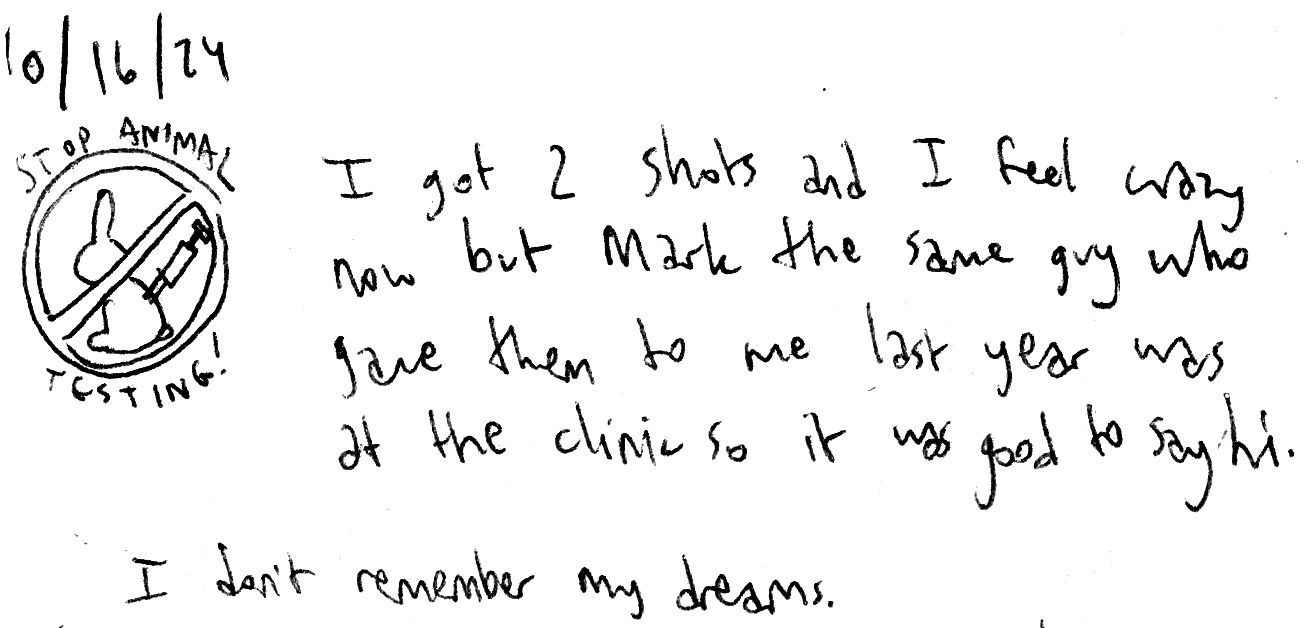 10/16/24
STOP ANIMAL
TESTING!
I got 2 shots and I feel crazy
now but Mark the same guy who
gave them to me last year was
at the clinic so it was good to say hi.
I don't remember my dreams.